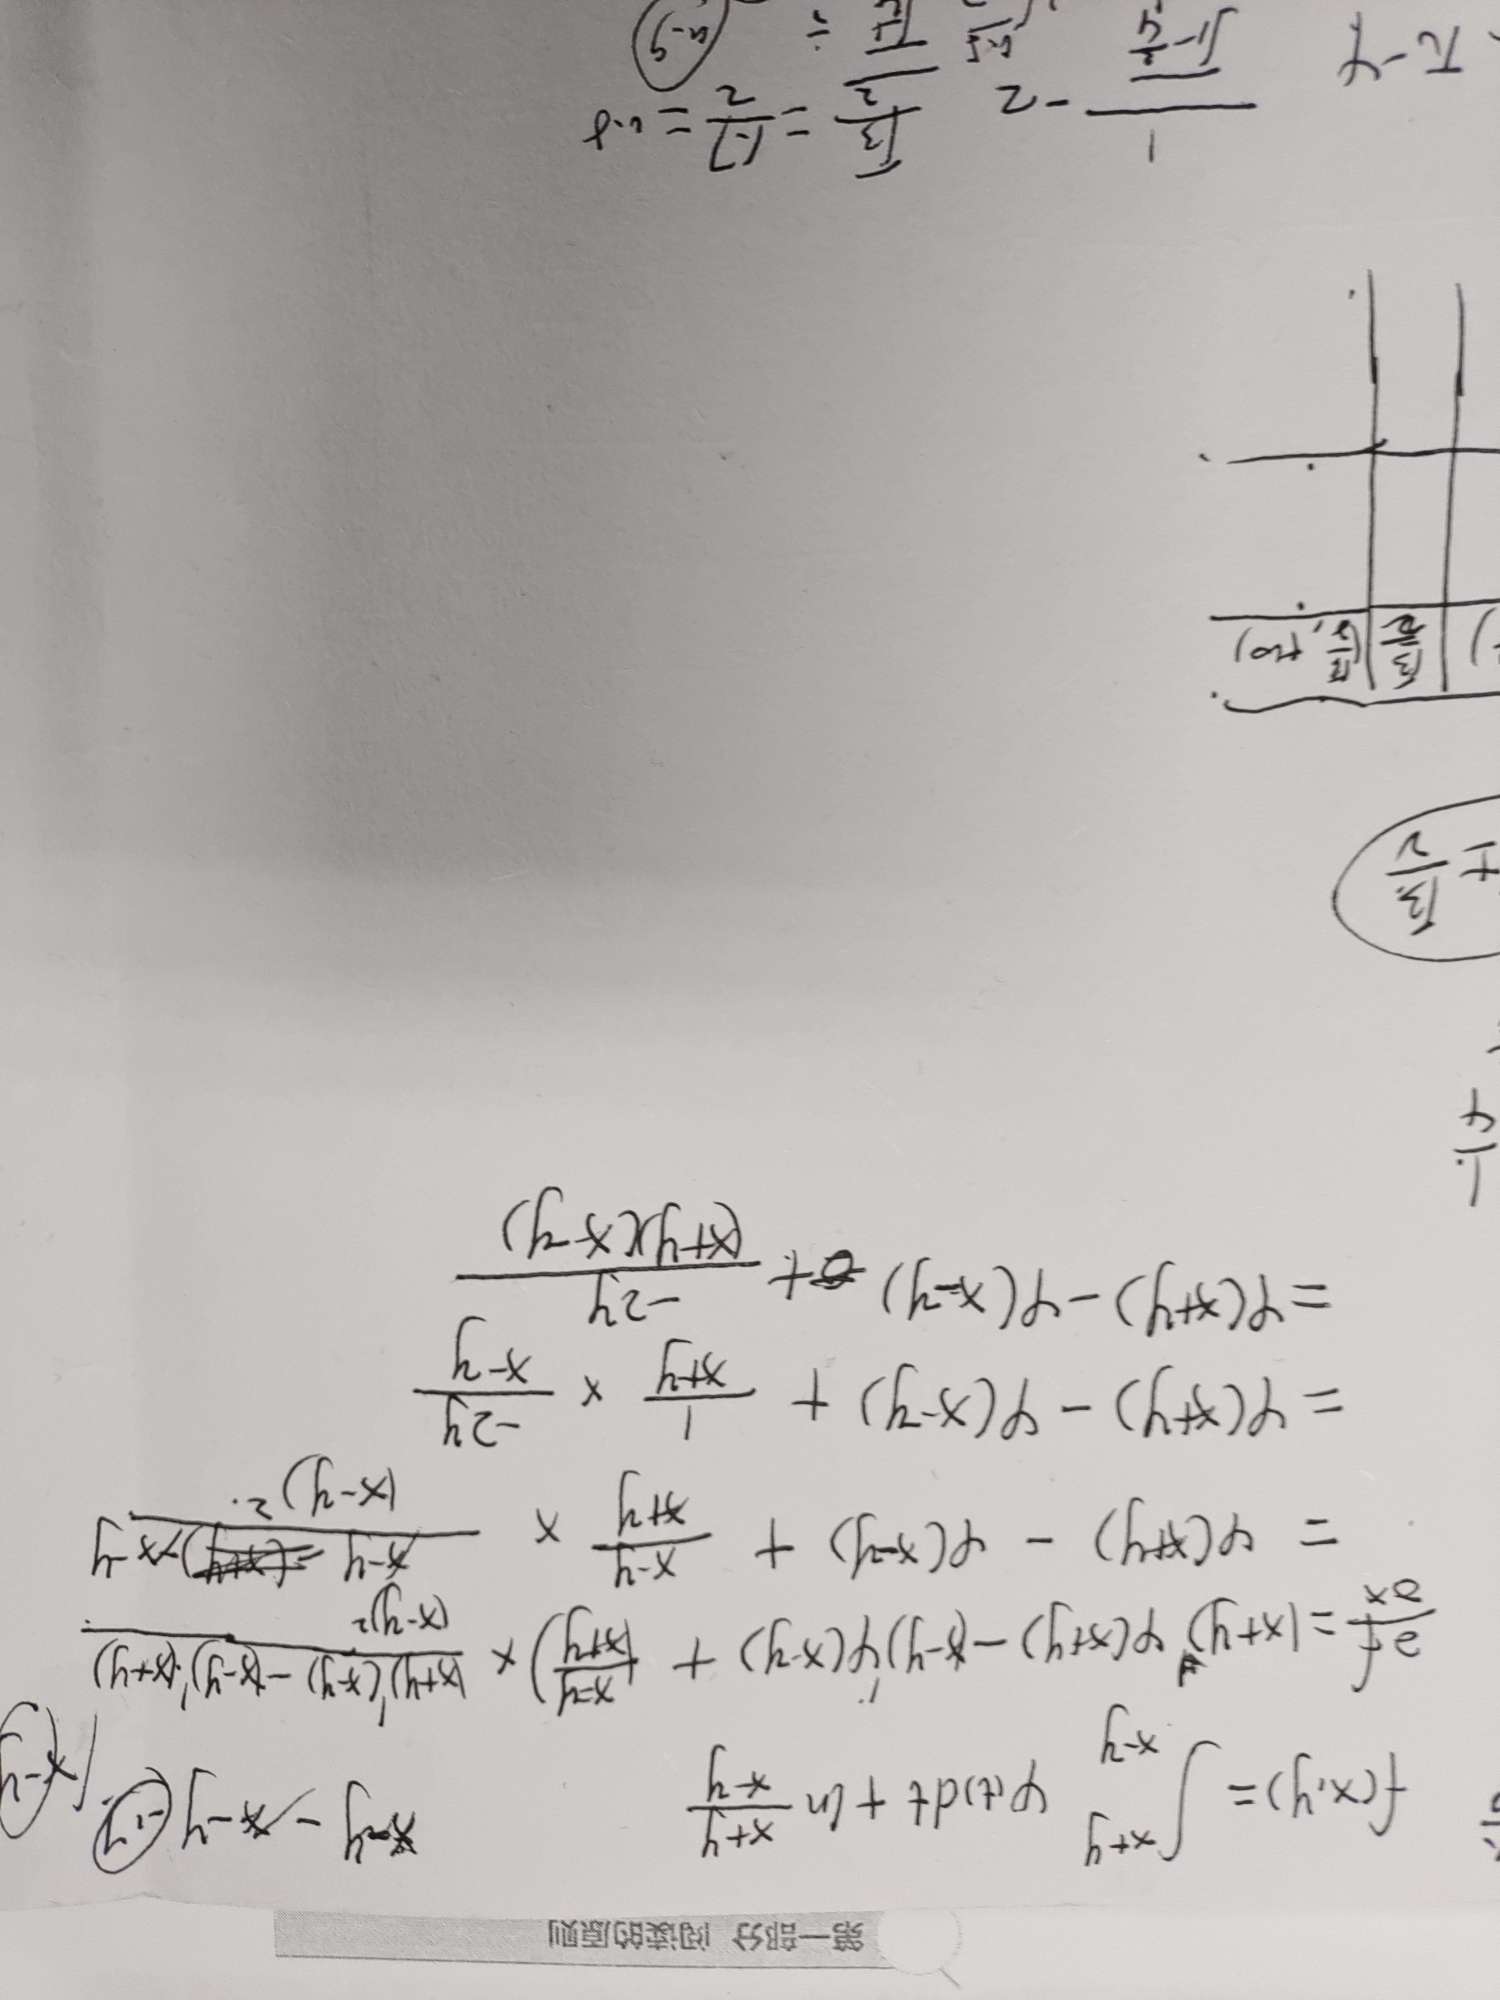 第一部分 阅读的原则
f(x,y)=∫_{x-y}^{x+y} φ(t)dt + ln (x+y)/(x-y)
x-y - x-y (-2y)
∂f/∂x = (x+y)' φ(x+y) - (x-y)' φ(x-y) + (x-y)/(x+y) × ((x+y)'(x-y) - (x-y)'(x+y))/(x-y)²
= φ(x+y) - φ(x-y) + (x-y)/(x+y) × (x-y-x-y)/(x-y)²
= φ(x+y) - φ(x-y) + 1/(x+y) × -2y/(x-y)
= φ(x+y) - φ(x-y) + -2y/((x+y)(x-y))
√3/2
√3/2
+∞)
-2
√3/2